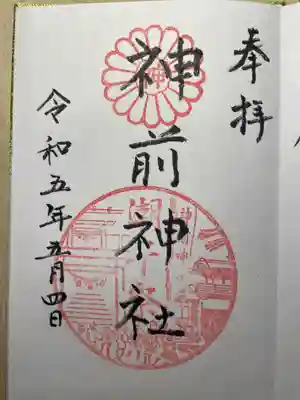 奉拝
神前神社
令和五年五月四日
神